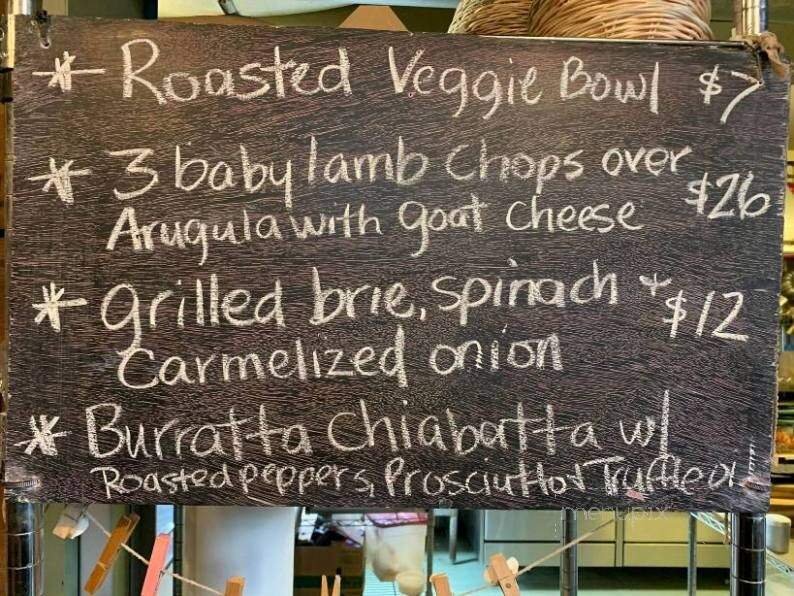 * Roasted Veggie Bowl $7
* 3 baby lamb Chops over
Arugula with goat Cheese $26
* grilled brie, spinach + $12
Carmelized onion
* Burratta Chiabatta w/
Roasted peppers, Prosciutto + Truffle oil
menupix